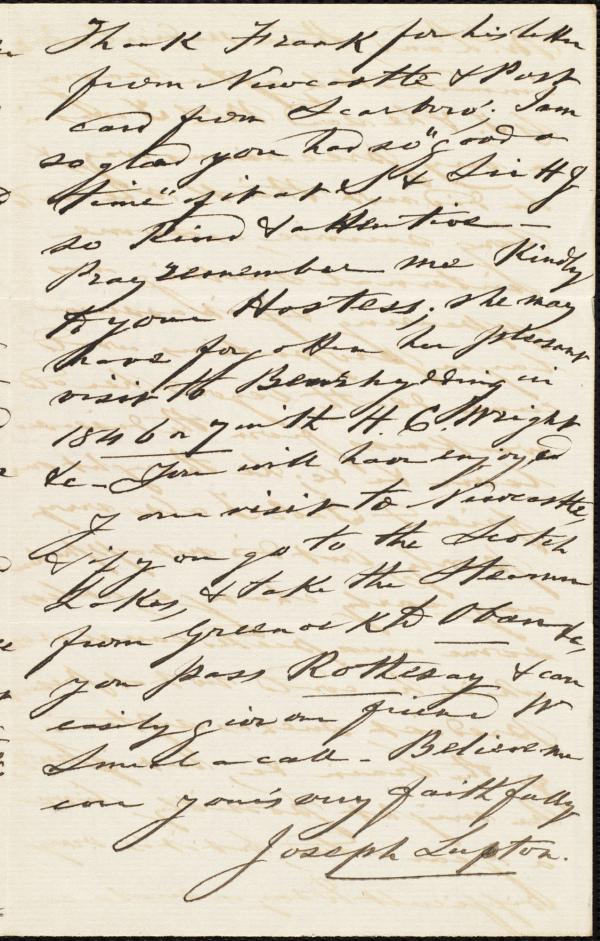 Thank Frank for his letter
from Newcastle & Post
card from Scarbro'; I am
so glad you had so "good a
time" of it at & Sir H J
so kind & attentive -
Pray remember me kindly
to your Hostess; she may
have forgotten her pleasant
visit to Benrhydding in
1846 or 7 with H. C Wright
&c - You will have enjoyed
your visit to Newcastle,
& if you go to the Scotch
Lakes, & take the Steamer
from Greenock to Oban &c,
you pass Rothesay & can
easily give our friend W
Smeal a call - Believe me
ever yours very faithfully
Joseph Lupton.